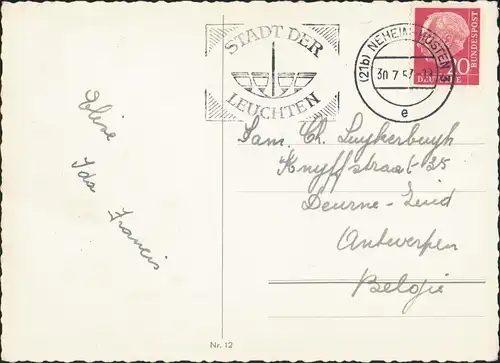 STADT DER
LEUCHTEN
(21b) NEHEIM-HÜSTEN
30.7.57
e
DEUTSCHE
BUNDESPOST
20
Fam. Ch. Luykerbuyh
Knyffstraat-25
Deurne-Zuid
Antwerpen
België
Ida Francis
Nr. 12